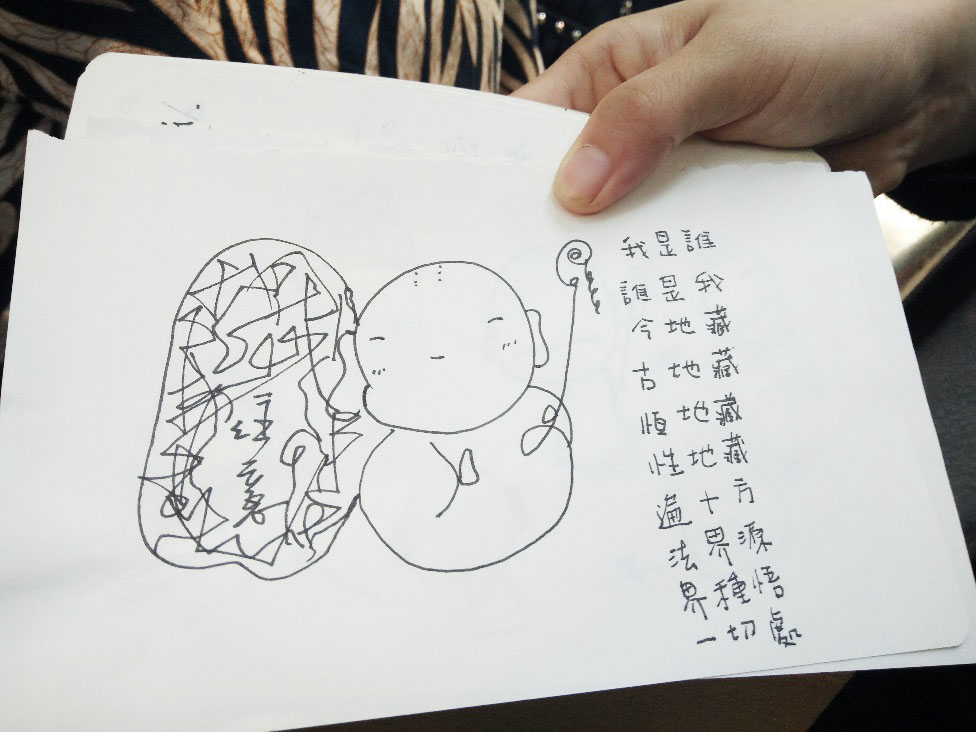 我是誰
誰是我
今地藏
古地藏
恆地藏
性地藏
遍十方
法界源
界種悟
一切處